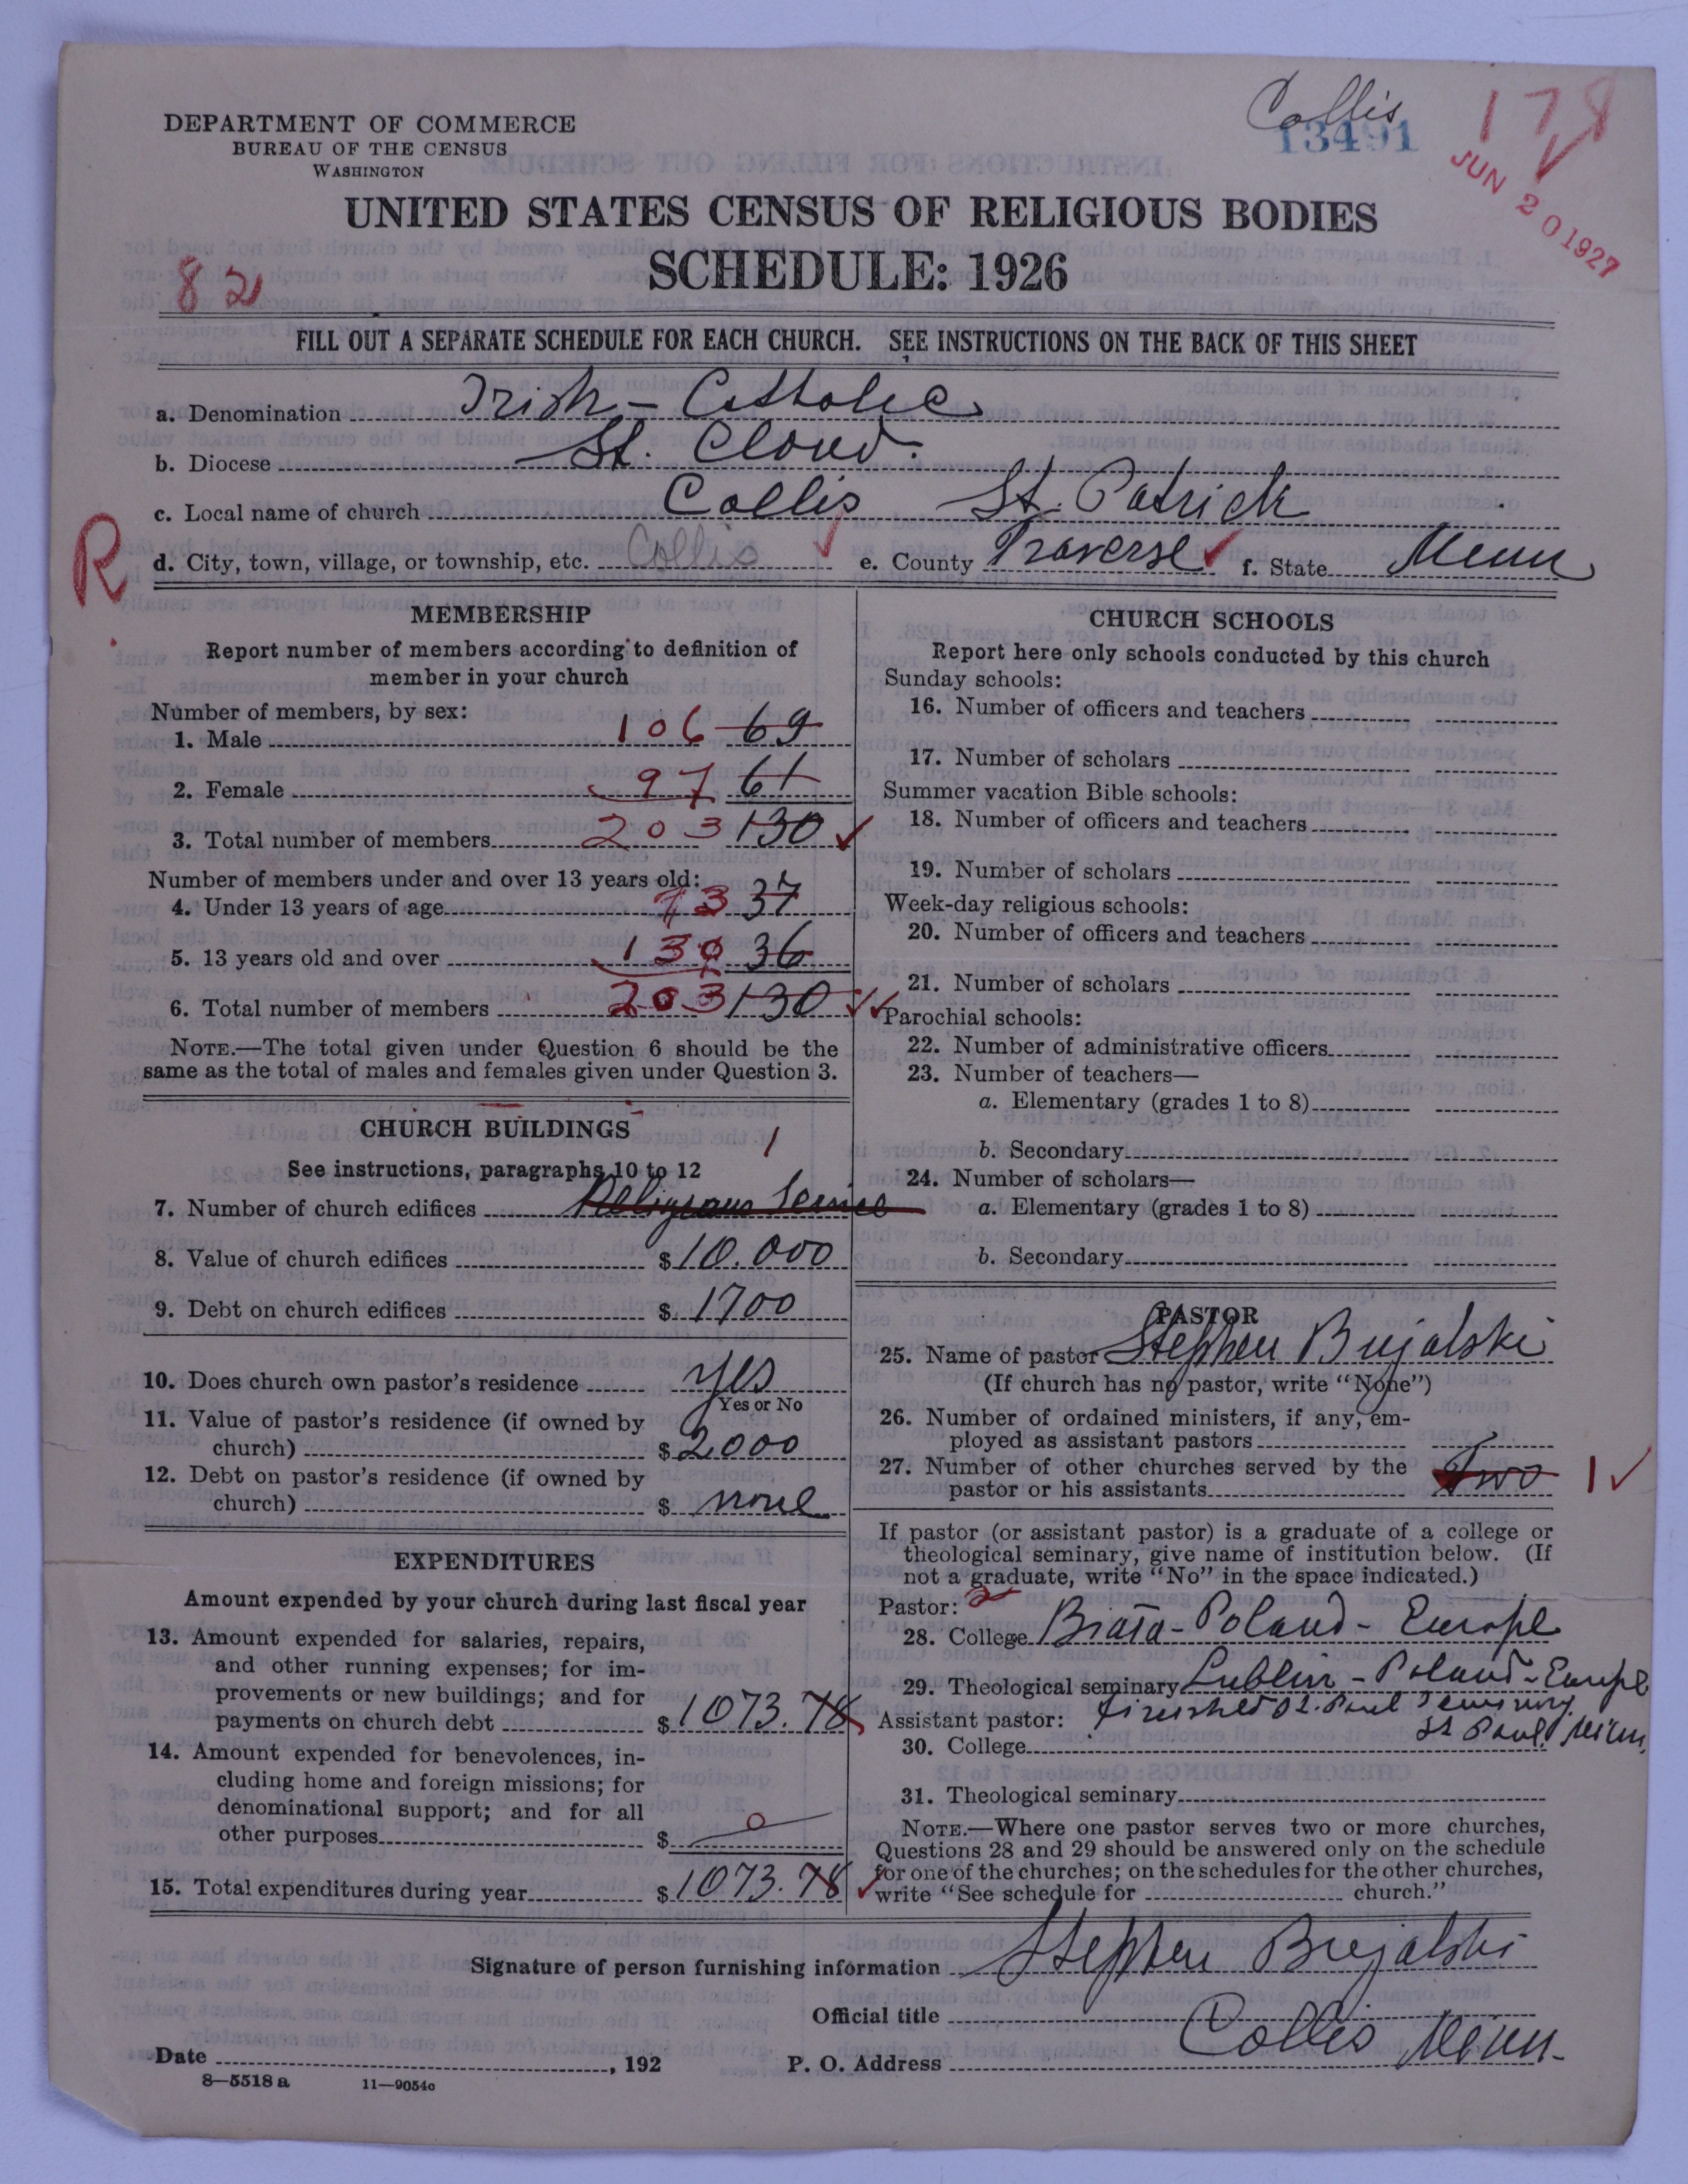 Collis
13491
178
JUN 20 1927
DEPARTMENT OF COMMERCE
BUREAU OF THE CENSUS
WASHINGTON
UNITED STATES CENSUS OF RELIGIOUS BODIES
SCHEDULE: 1926
82
FILL OUT A SEPARATE SCHEDULE FOR EACH CHURCH. SEE INSTRUCTIONS ON THE BACK OF THIS SHEET
a. Denomination Irish-Catholic
b. Diocese St. Cloud.
c. Local name of church Collis St. Patrick
R
d. City, town, village, or township, etc. Collis e. County Traverse f. State Minn
MEMBERSHIP
Report number of members according to definition of
member in your church
Number of members, by sex:
1. Male 106 69
2. Female 97 61
3. Total number of members 203 130
Number of members under and over 13 years old:
4. Under 13 years of age 73 37
5. 13 years old and over 130 36
6. Total number of members 203 130
NOTE.—The total given under Question 6 should be the
same as the total of males and females given under Question 3.
CHURCH BUILDINGS
See instructions, paragraphs 10 to 12
1
7. Number of church edifices Religious Service
8. Value of church edifices $10.000
9. Debt on church edifices $1700
10. Does church own pastor's residence yes
Yes or No
11. Value of pastor's residence (if owned by
church) $2000
12. Debt on pastor's residence (if owned by
church) $ none
EXPENDITURES
Amount expended by your church during last fiscal year
13. Amount expended for salaries, repairs,
and other running expenses; for im-
provements or new buildings; and for
payments on church debt $1073.78
14. Amount expended for benevolences, in-
cluding home and foreign missions; for
denominational support; and for all
other purposes $ 0
15. Total expenditures during year $1073.78
CHURCH SCHOOLS
Report here only schools conducted by this church
Sunday schools:
16. Number of officers and teachers
17. Number of scholars
Summer vacation Bible schools:
18. Number of officers and teachers
19. Number of scholars
Week-day religious schools:
20. Number of officers and teachers
21. Number of scholars
Parochial schools:
22. Number of administrative officers
23. Number of teachers—
a. Elementary (grades 1 to 8)
b. Secondary
24. Number of scholars—
a. Elementary (grades 1 to 8)
b. Secondary
PASTOR
25. Name of pastor Stephen Bujalski
(If church has no pastor, write "None")
26. Number of ordained ministers, if any, em-
ployed as assistant pastors
27. Number of other churches served by the
pastor or his assistants Two 1
If pastor (or assistant pastor) is a graduate of a college or
theological seminary, give name of institution below. (If
not a graduate, write "No" in the space indicated.)
Pastor: 2
28. College Biała-Poland-Europe
29. Theological seminary Lublin-Poland-Europe
finished St. Paul Seminary
Assistant pastor:
St Paul, Minn.
30. College
31. Theological seminary
NOTE.—Where one pastor serves two or more churches,
Questions 28 and 29 should be answered only on the schedule
for one of the churches; on the schedules for the other churches,
write "See schedule for church."
Signature of person furnishing information Stephen Bujalski
Official title
Date , 192 P. O. Address Collis Minn.
8—5518 a 11—9054c